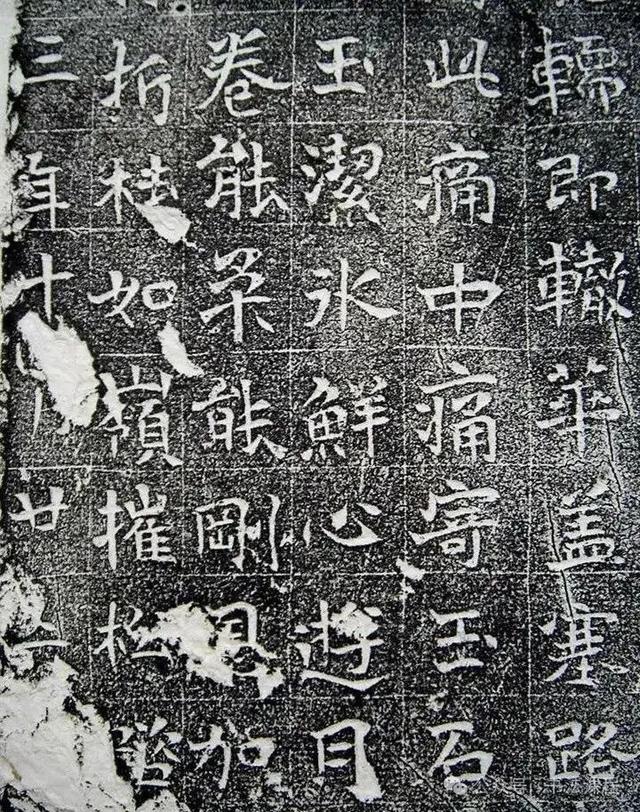 轜即轍華盖塞路
此痛中痛寄玉石
玉潔氷鮮心遊月
卷能柔能剛恩加
折桂如嶺摧松
三年十月廿二